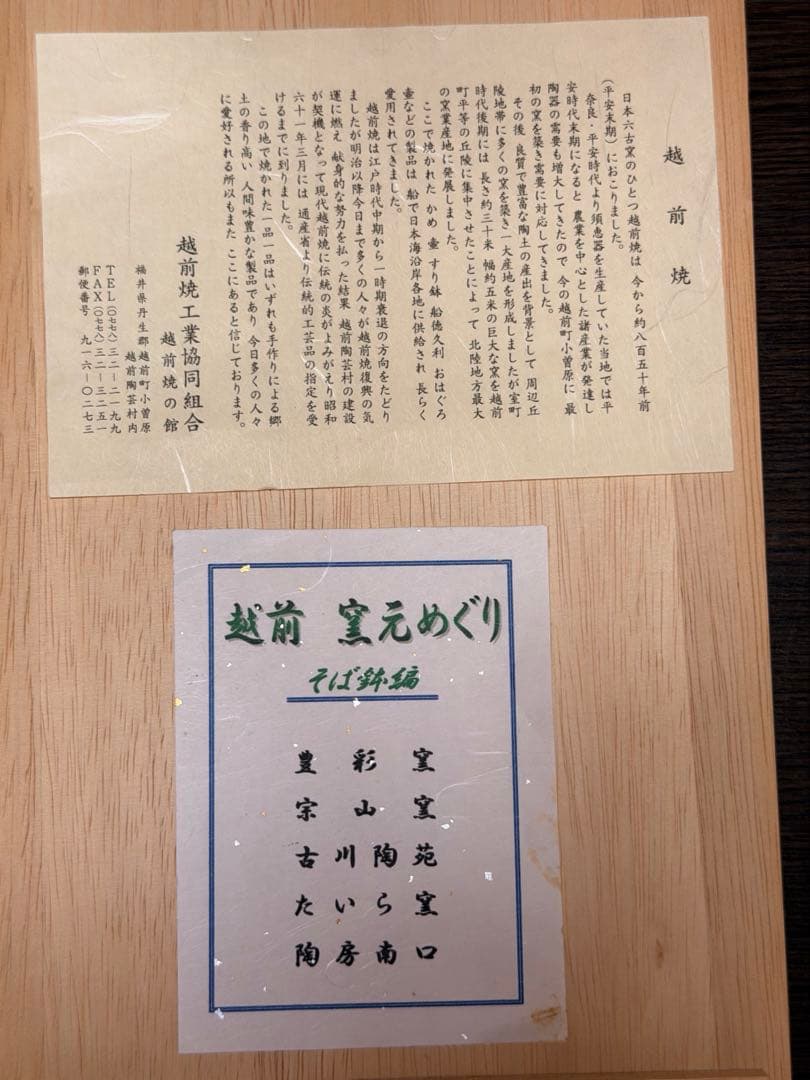 越前焼
日本六古窯のひとつ越前焼は 今から約八百五十年前
（平安末期）におこりました。
奈良・平安時代より須恵器を生産していた当地では平
安時代末期になると 農業を中心とした諸産業が発達し
陶器の需要も増大してきたので 今の越前町小曽原に 最
初の窯を築き需要に対応してきました。
その後 良質で豊富な陶土の産出を背景として 周辺丘
陵地帯に多くの窯を築き一大産地を形成しましたが室町
時代後期には 長さ約三十米 幅約五米の巨大な窯を越前
町平等の丘陵に集中させたことによって 北陸地方最大
の窯業産地に発展しました。
ここで焼かれた かめ 壷 すり鉢 船徳久利 おはぐろ
壷などの製品は 船で日本海沿岸各地に供給され 長らく
愛用されてきました。
越前焼は江戸時代中期から一時期衰退の方向をたどり
ましたが明治以降今日まで多くの人々が越前焼復興の気
運に燃え 献身的な努力を払った結果 越前陶芸村の建設
が契機となって現代越前焼に伝統の炎がよみがえり昭和
六十一年三月には 通産省より伝統的工芸品の指定を受
けるまでに到りました。
この地で焼かれた一品一品はいずれも手作りによる郷
土の香り高い 人間味豊かな製品であり 今日多くの人々
に愛好される所以もまた ここにあると信じております。
越前焼工業協同組合
越前焼の館
福井県丹生郡越前町小曽原
越前陶芸村内
TEL（〇七七八）三二－二一九九
FAX（〇七七八）三二－三二五一
郵便番号 九一六－〇二七三
越前 窯元めぐり
そば鉢編
豊彩窯
宗山窯
古川陶苑
たいら窯
陶房南口